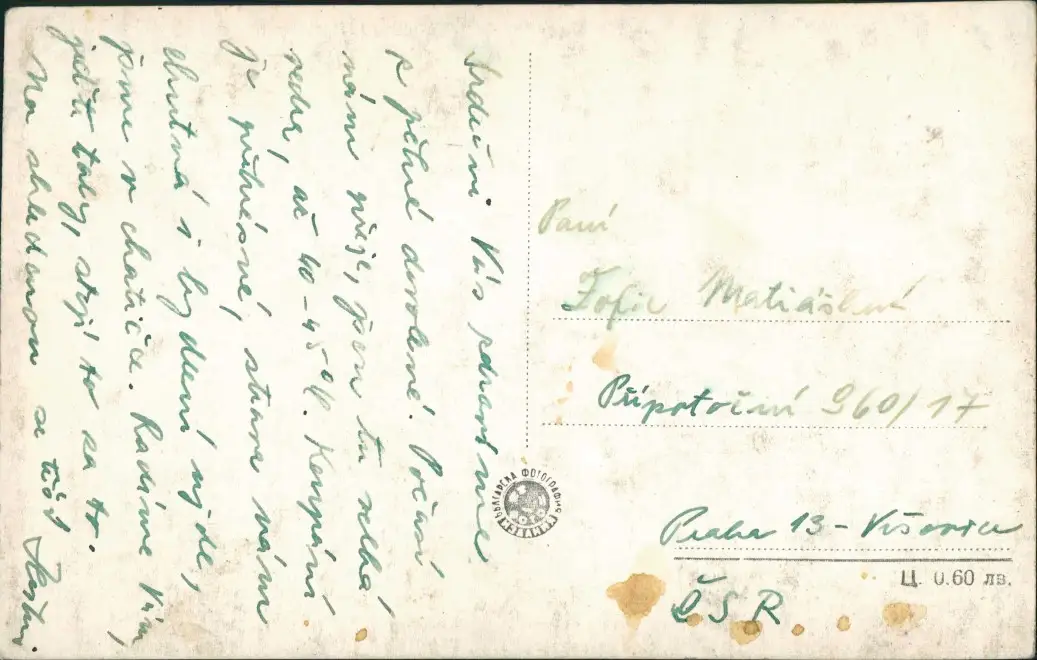 Srdečně Vás zdravíme
z pěkné dovolené. Počasí
nám přeje, jsou tu velká
vedra, až 40-45°C. Koupání
je přenésné, strava nám
chutná i bydlení ujde,
jsme v chatičce. Radíme Vám,
jeďte taky, stojí to za to.
Na shledanou se těší
Paní
Žofie Matiášková
Přípotoční 960/17
Praha 13 - Vršovice
ČSR
БЪЛГАРСКА ФОТОГРАФИЯ
Ц. 0.60 лв.